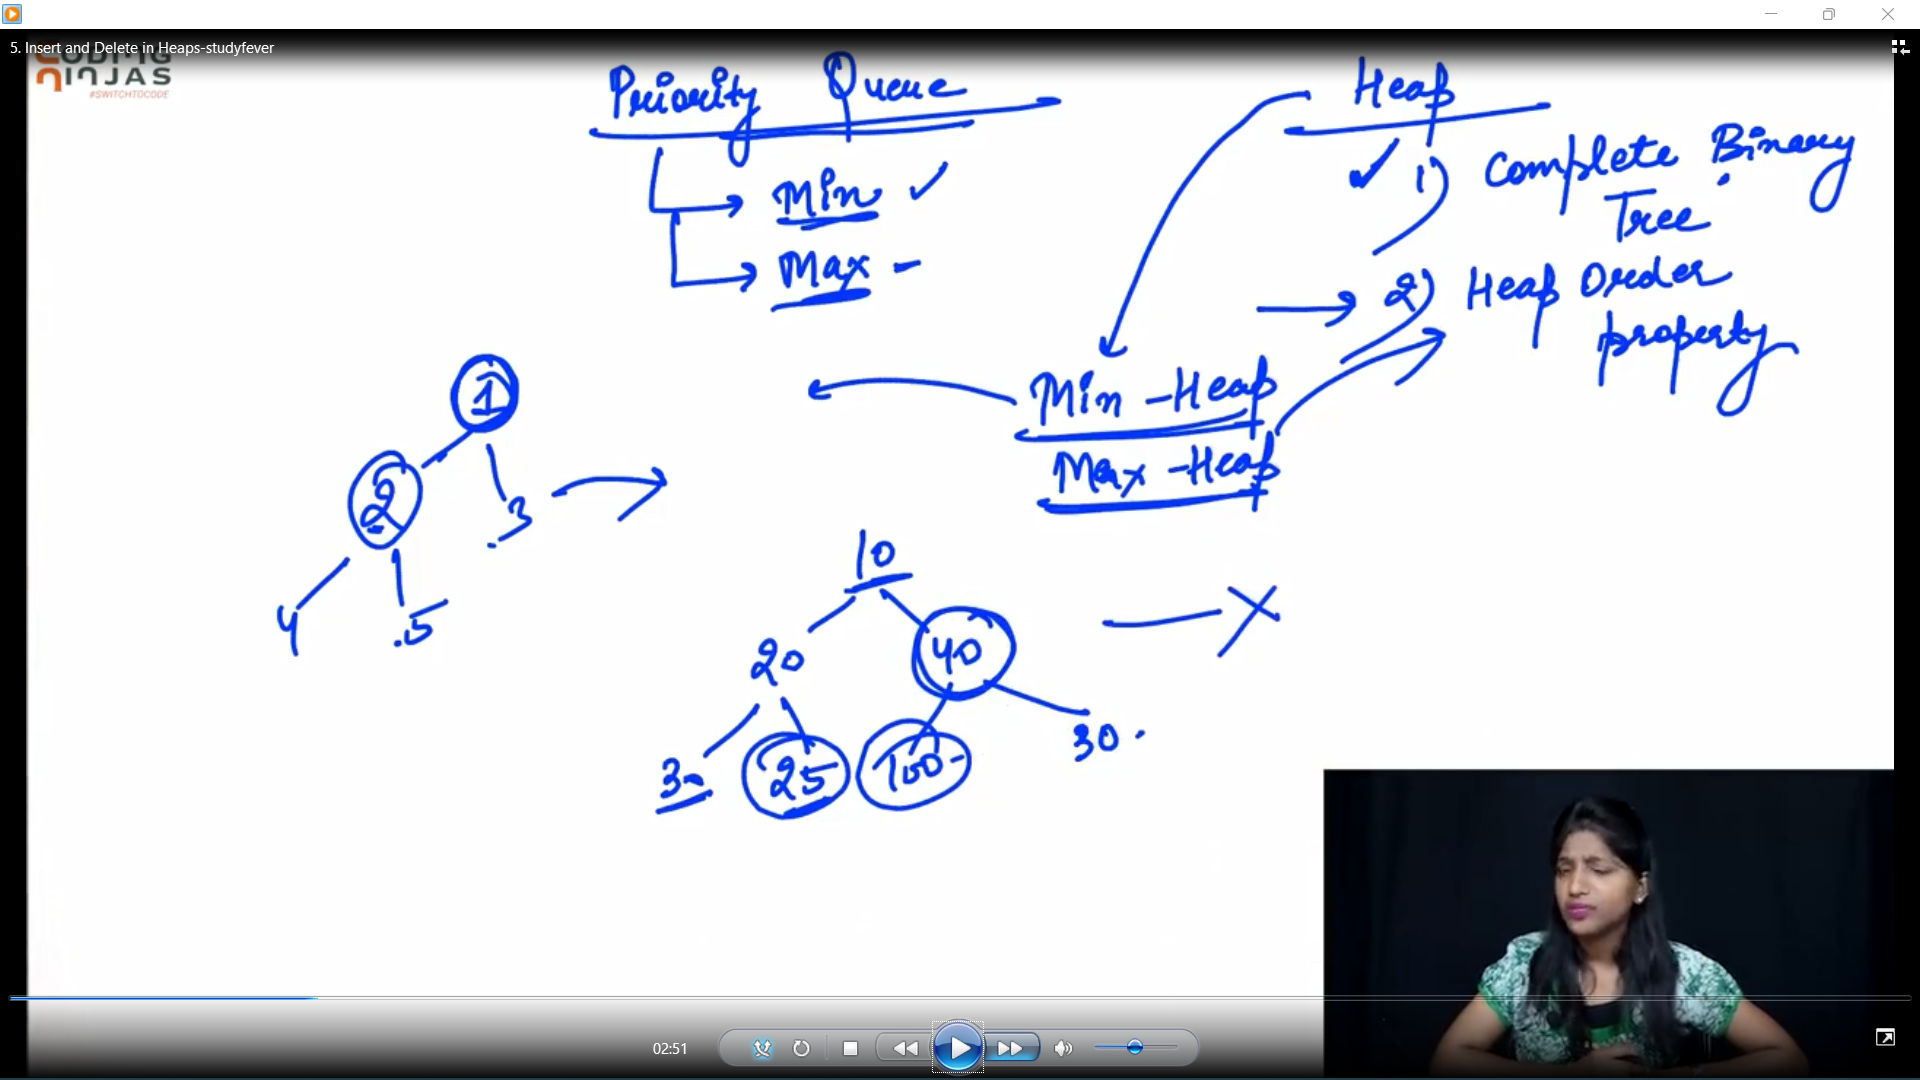 5. Insert and Delete in Heaps-studyfever
CODING
NINJAS
#SWITCHTOCODE
Priority Queue
Min
Max
Heap
1) Complete Binary
Tree
2) Heap Order
property
Min-Heap
Max-Heap
1
2 3
4 5
10
20 40
30 25 100 30
02:51